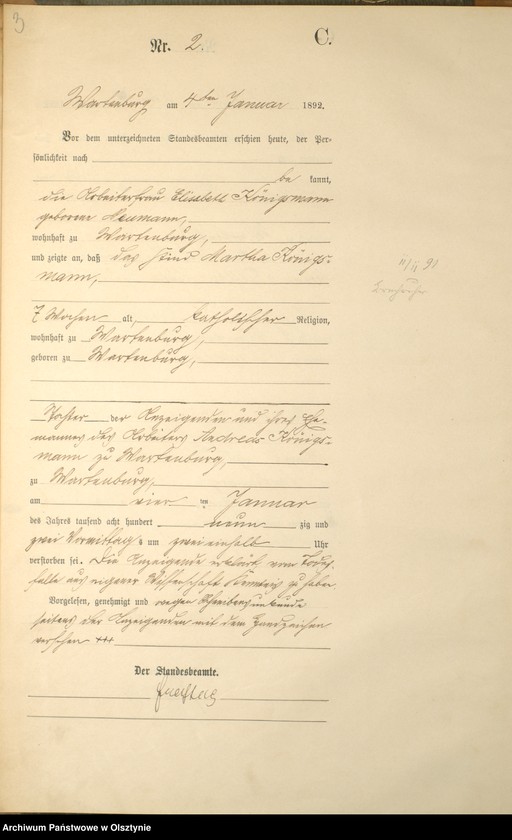 3
Nr. 2.
C.
Wartenburg am 4ten Januar 1892.
Vor dem unterzeichneten Standesbeamten erschien heute, der Per-
sönlichkeit nach
be kannt,
die Arbeiterfrau Elisabeth Königsmann
geborene Neumann,
wohnhaft zu Wartenburg,
und zeigte an, daß das Kind Martha Königs-
mann,
7 Wochen alt, katholischer Religion,
wohnhaft zu Wartenburg,
geboren zu Wartenburg,
Tochter der Anzeigenden und ihres Ehe-
mannes des Arbeiters Andreas Königs-
mann zu Wartenburg,
zu Wartenburg,
am vier ten Januar
des Jahres tausend acht hundert neun zig und
zwei Vormittags um zweieinhalb Uhr
verstorben sei. Die Anzeigende erklärt vom Todes-
falle aus eigener Wissenschaft Kenntnis zu haben
Vorgelesen, genehmigt und wegen Schreibensunkunde
seitens der Anzeigenden mit dem Handzeichen
versehen +++
Der Standesbeamte.
Freitag
Archiwum Państwowe w Olsztynie